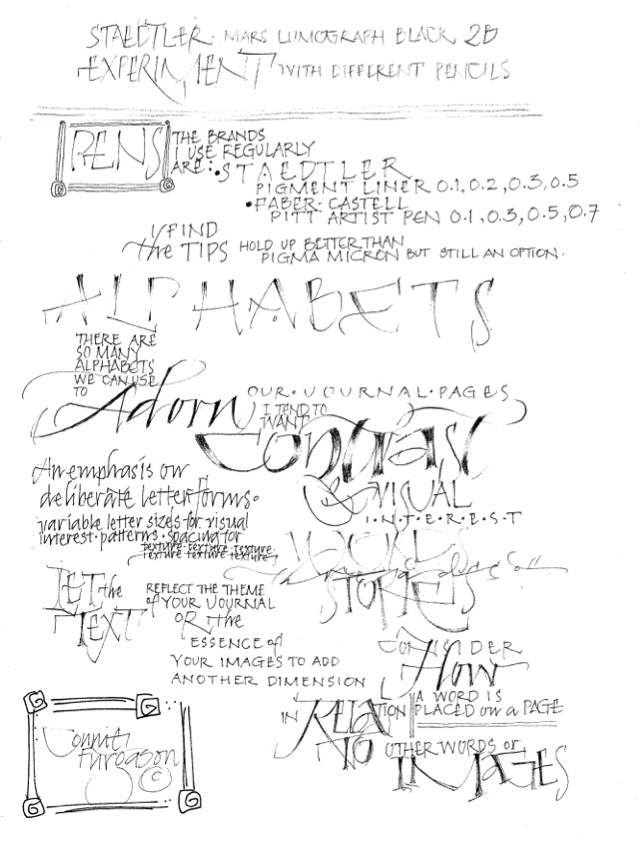 STAEDTLER · MARS LUMOGRAPH BLACK 2B
EXPERIMENT WITH DIFFERENT PENCILS
PENS
THE BRANDS
I USE REGULARLY
ARE: • STAEDTLER
PIGMENT LINER 0.1, 0.2, 0.3, 0.5
• FABER-CASTELL
PITT ARTIST PEN 0.1, 0.3, 0.5, 0.7
I FIND
the TIPS HOLD UP BETTER THAN
PIGMA MICRON BUT STILL AN OPTION.
ALPHABETS
THERE ARE
SO MANY
ALPHABETS
WE CAN USE
TO
Adorn OUR·JOURNAL·PAGES
I TEND TO
WANT
CONTRAST
& VISUAL
I·N·T·E·R·E·S·T
An emphasis on
deliberate letterforms.
variable letter sizes for visual
interest · patterns · spacing for
texture · texture · texture
texture texture texture
WORDS
STORIES
LET the
TEXT
REFLECT THE THEME
of YOUR JOURNAL
OR the
ESSENCE of
YOUR IMAGES TO ADD
ANOTHER DIMENSION
CONSIDER
How
A WORD IS
PLACED on a PAGE
IN RELATION
TO OTHER WORDS or
IMAGES
Connie
Furgason
©